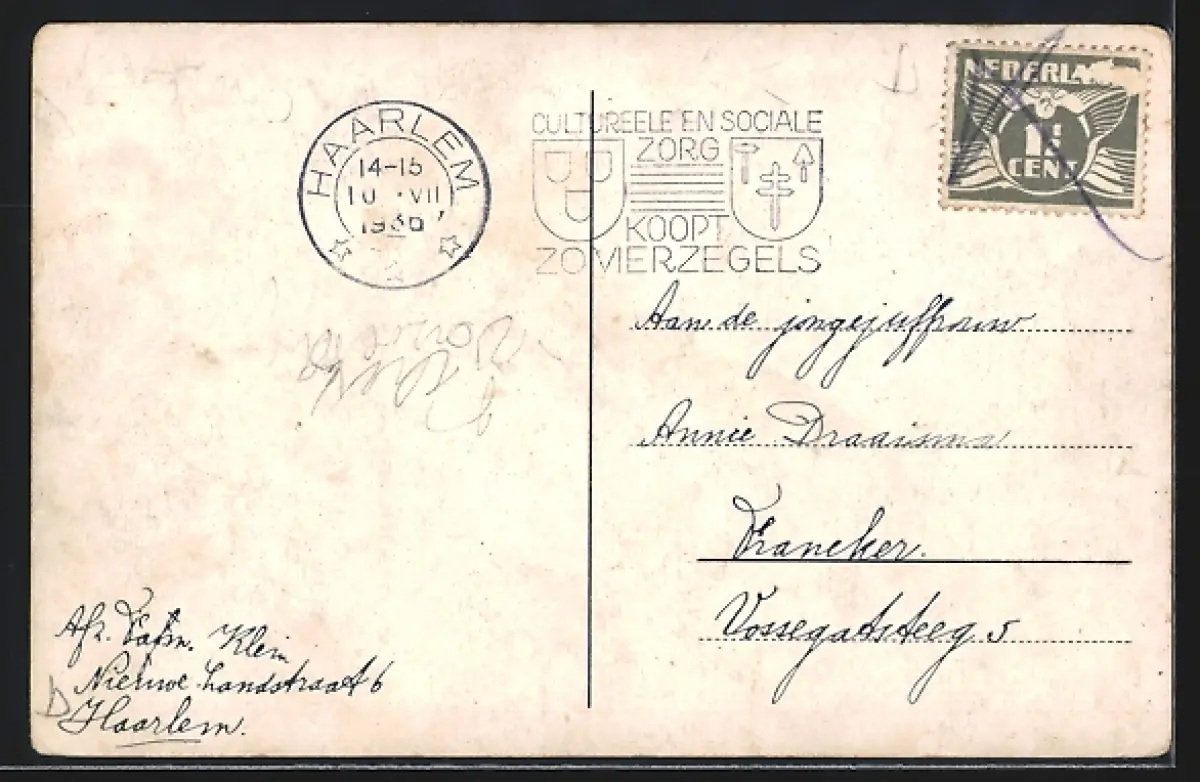 HAARLEM
14-15
10 VII
1936
CULTUREELE EN SOCIALE
ZORG
KOOPT
ZOMERZEGELS
NEDERLAND
1½
CENT
Aan de jongejuffrouw
Annie Draaisma
Franeker.
Vossegatsteeg 5
Afz. Fam. Klein
Nieuwe Landstraat 6
Haarlem.